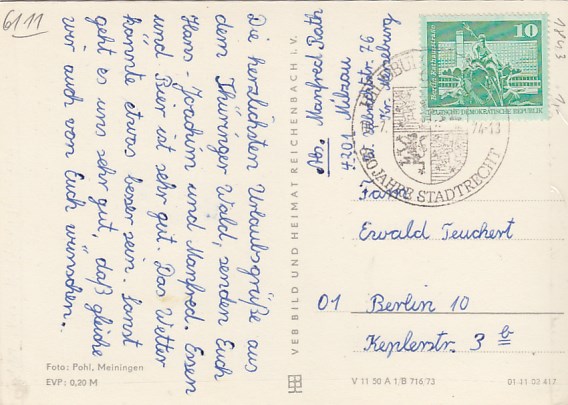 6111
1843
Die herzlichsten Urlaubsgrüße aus
dem Thüringer Wald, senden Euch
Hans-Joachim und Manfred. Essen
und Bier ist sehr gut. Das Wetter
könnte etwas besser sein. Sonst
geht es uns sehr gut, daß gleiche
wir auch von Euch wünschen.
Foto: Pohl, Meiningen
EVP: 0,20 M
VEB BILD UND HEIMAT REICHENBACH i.V.
Abs. Manfred Rath
4201 Milzau
76
Kr. Merseburg
10
DEUTSCHE DEMOKRATISCHE REPUBLIK
JAHRE STADTRECHT
Fam.
Ewald Teuchert
01 Berlin 10
Keplerstr. 3 b
V 11 50 A 1/B 716/73
01 11 02 417